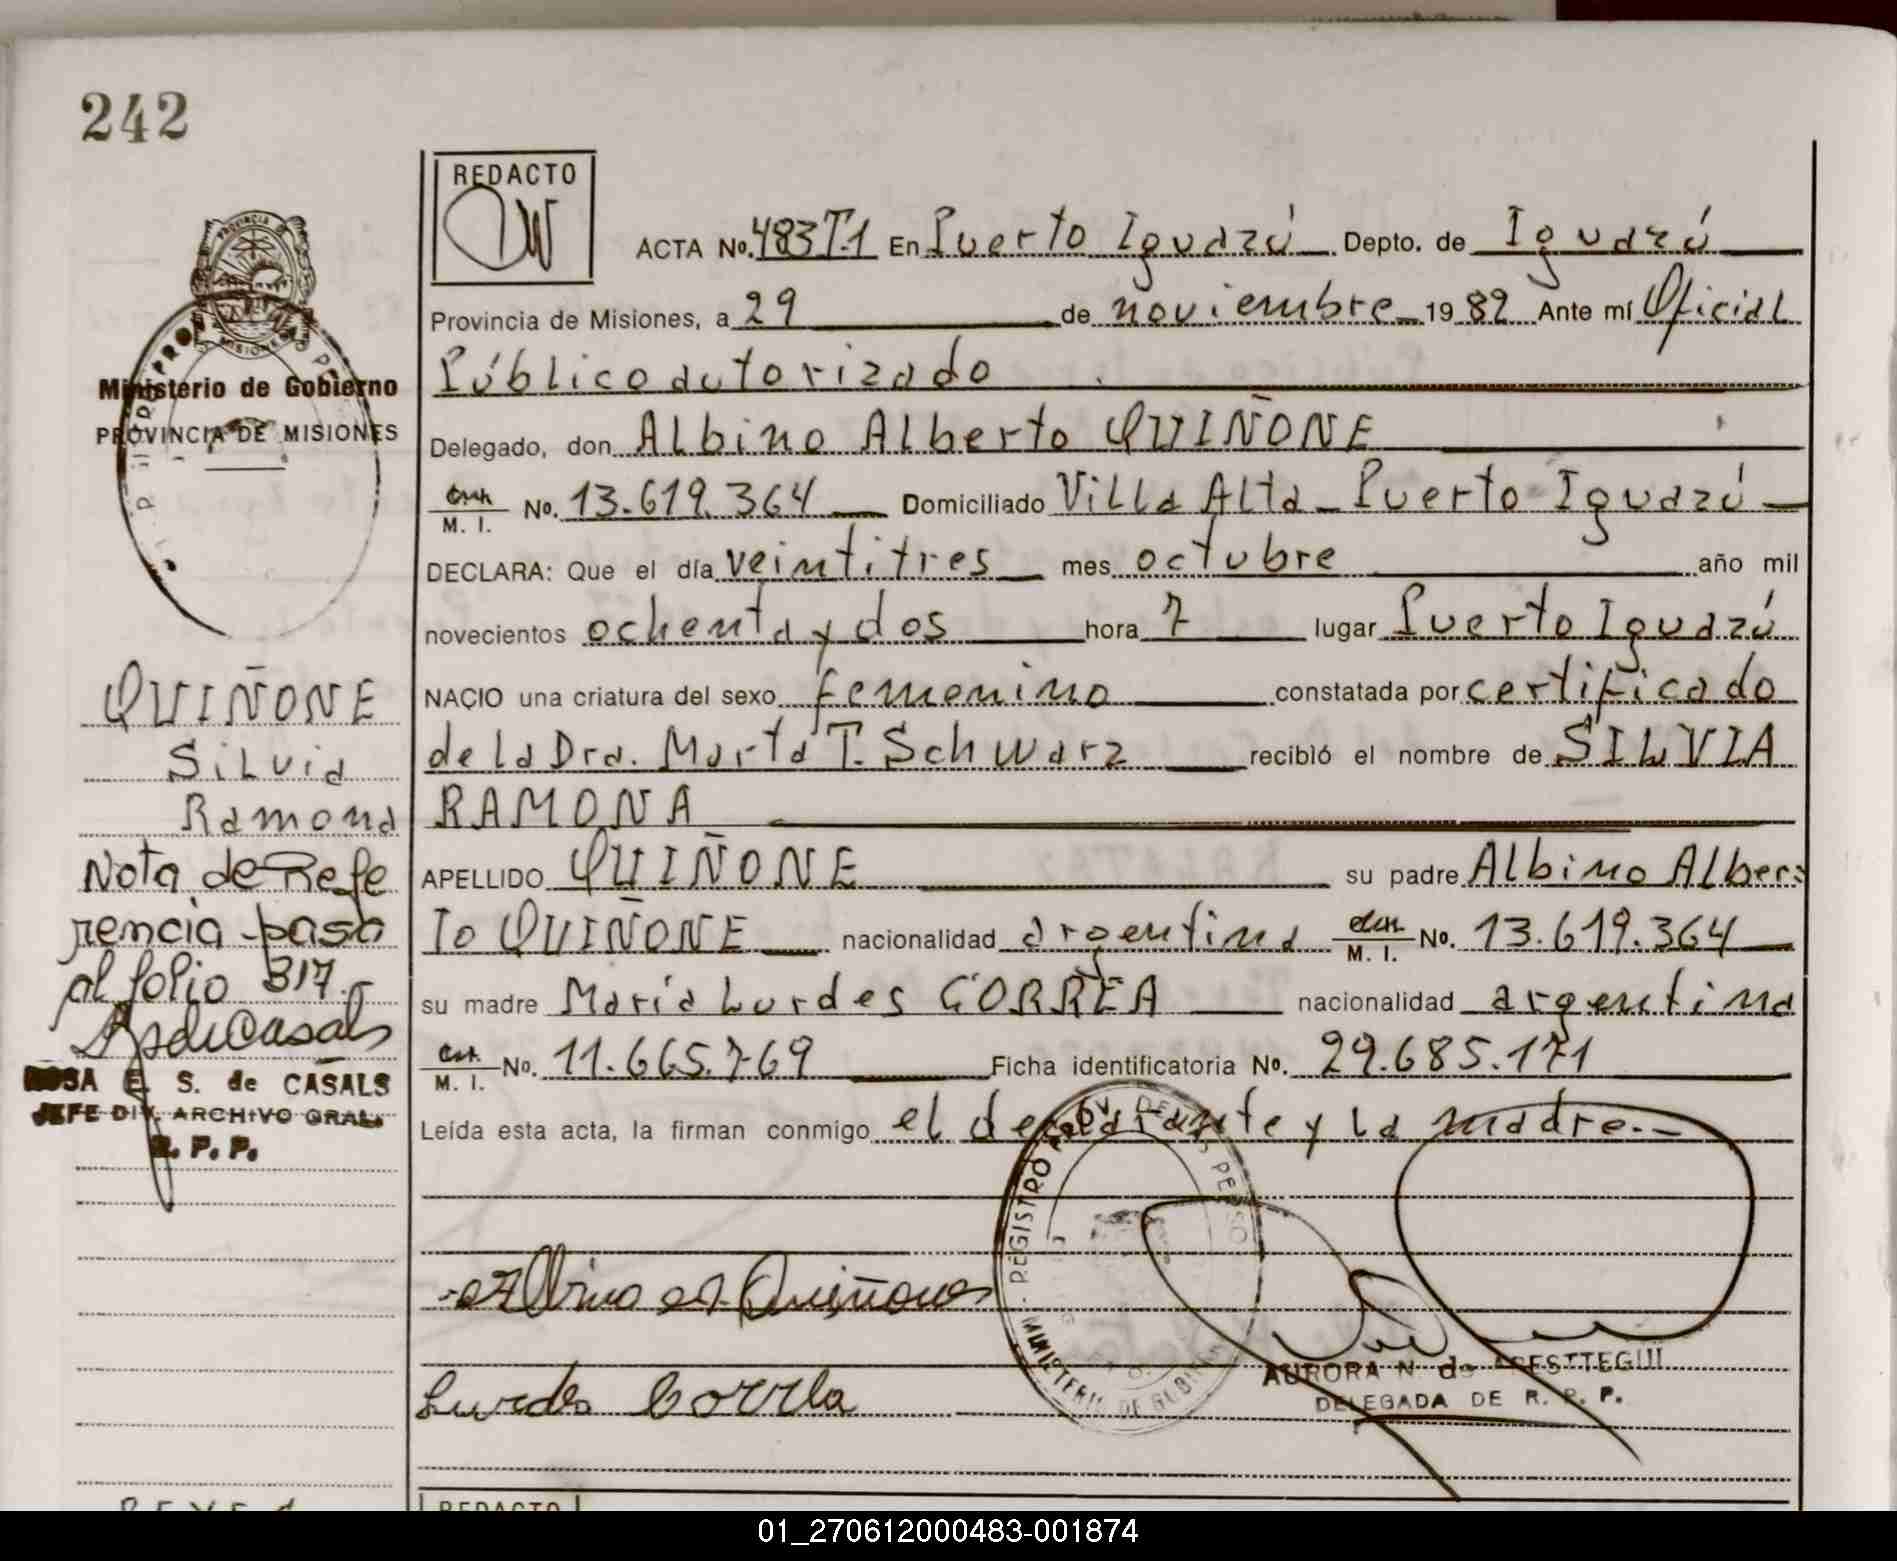 242
REDACTO
ACTA No. 483T.1 En Puerto Iguazú Depto. de Iguazú
Provincia de Misiones, a 29 de noviembre 19 82 Ante mí Oficial
Público autorizado
Delegado, don Albino Alberto QUIÑONE
M. I. No. 13.619.364 Domiciliado Villa Alta - Puerto Iguazú
DECLARA: Que el día veintitres mes octubre año mil
novecientos ochenta y dos hora 7 lugar Puerto Iguazú
NACIO una criatura del sexo femenino constatada por certificado
de la Dra. Marta T. Schwarz recibió el nombre de SILVIA
RAMONA
APELLIDO QUIÑONE su padre Albino Alber
To QUIÑONE nacionalidad argentina M. I. No. 13.619.364
su madre María Lurdes CORREA nacionalidad argentina
M. I. No. 11.665.769 Ficha identificatoria No. 29.685.171
Leída esta acta, la firman conmigo el declarante y la madre.-
Lurdes Correa
REGISTRO PROV. DE LAS PERSO
MINISTERIO DE GOBIERNO
AURORA N. de
DELEGADA DE R. P. P.
PROVINCIA
MISIONES
Ministerio de Gobierno
PROVINCIA DE MISIONES
QUIÑONE
Silvia
Ramona
Nota de Refe
rencia pasa
al folio 317.
ROSA E. S. de CASALS
JEFE DIV. ARCHIVO GRAL.
R. P. P.
REDACTO
01_270612000483-001874